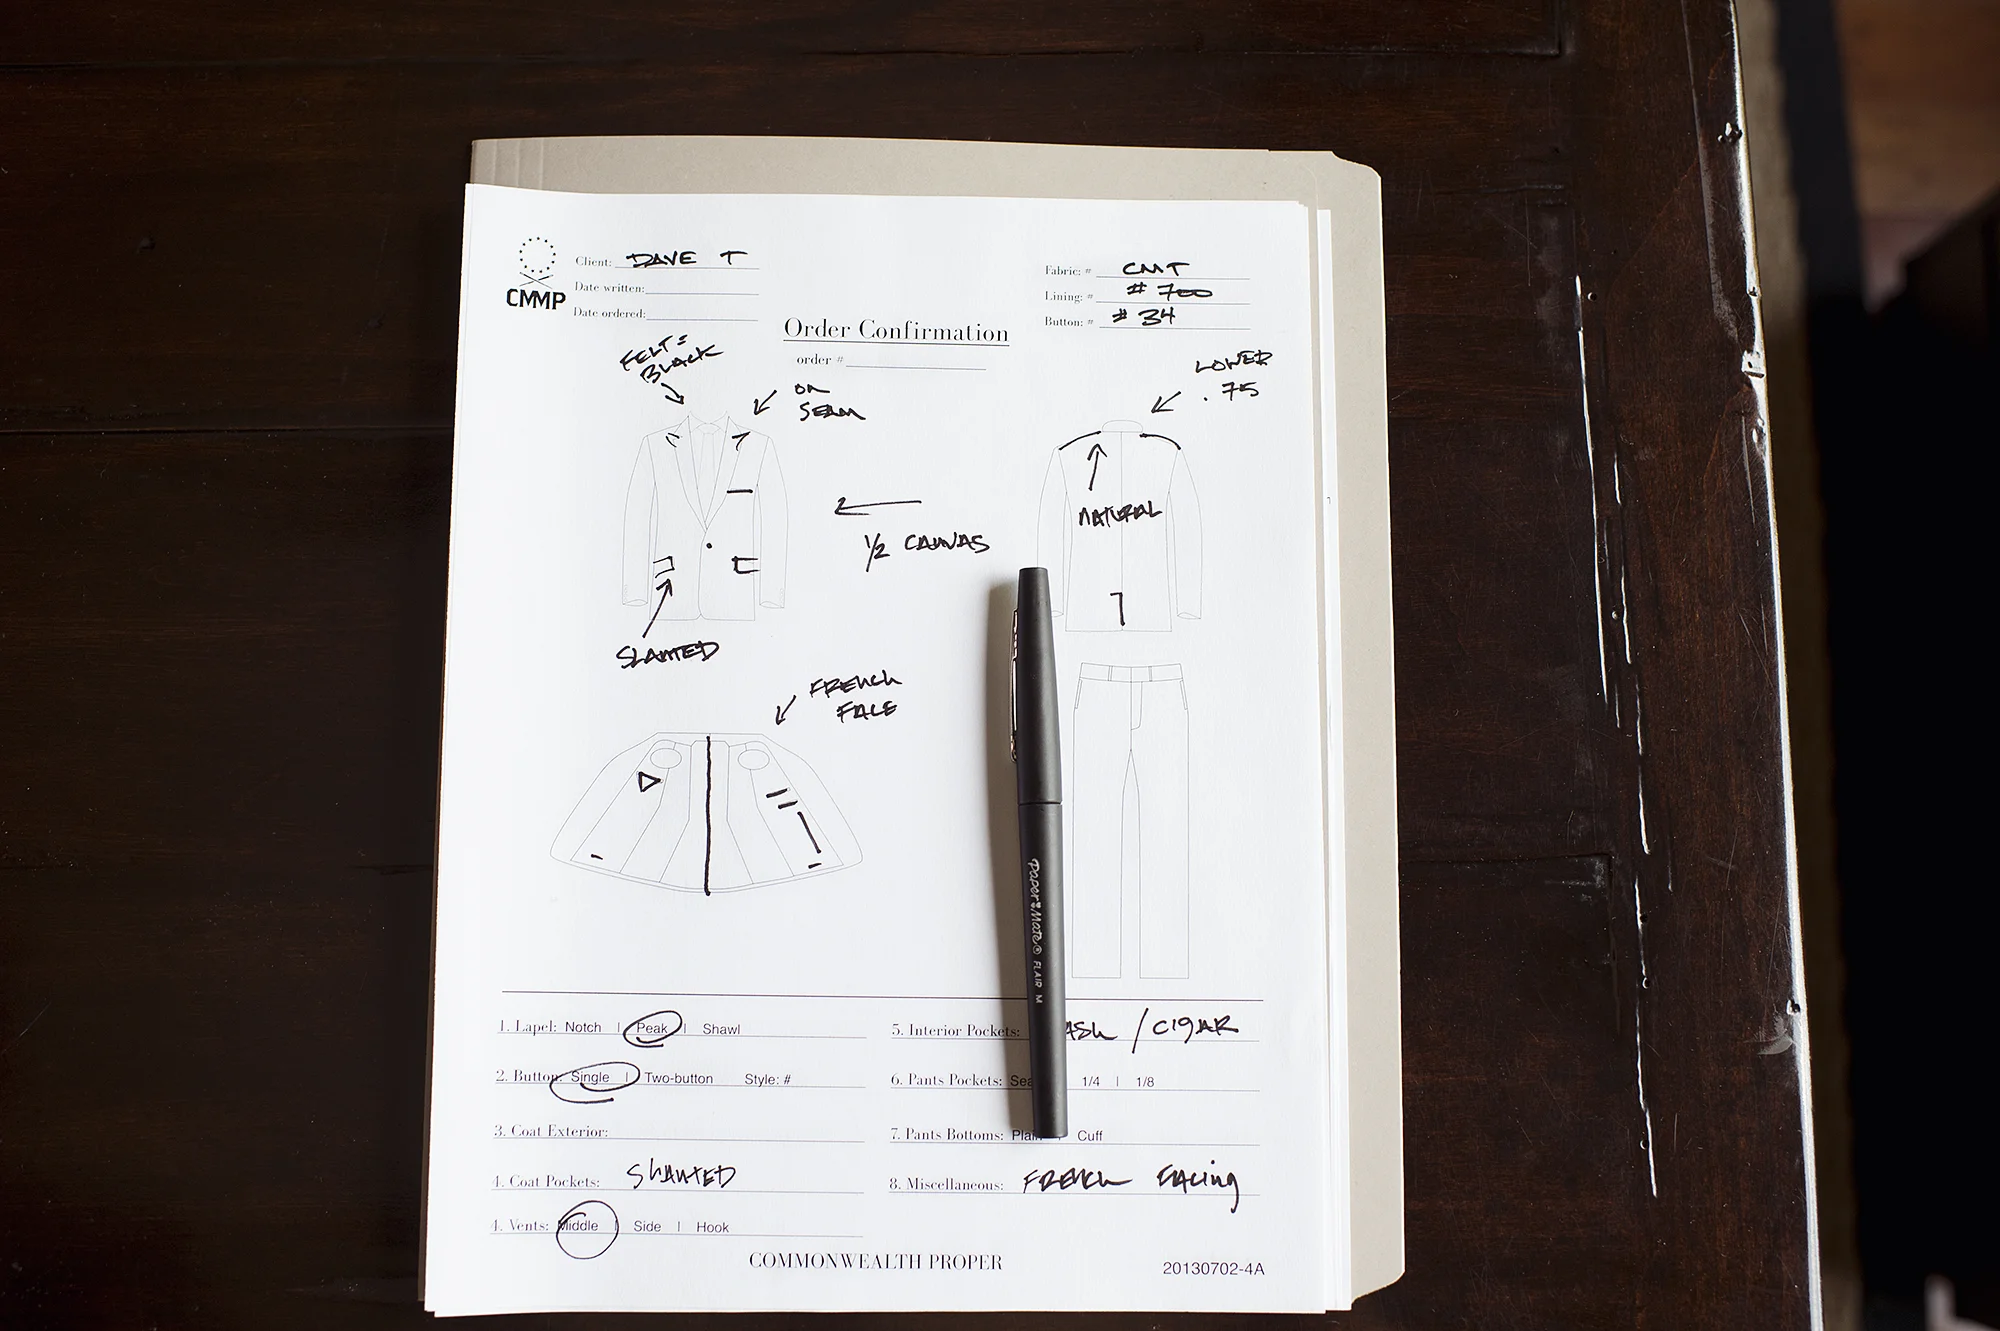 CMMP
Client: DAVE T
Date written:
Date ordered:
Fabric: # CMT
Lining: # # 700
Button: # # 34
Order Confirmation
order #
FELT =
BLACK
ON
SEAM
LOWER
.75
NATURAL
1/2 CANVAS
SLANTED
FRENCH
FACE
Paper Mate® FLAIR M
1. Lapel: Notch | Peak | Shawl
2. Button: Single | Two-button Style: #
3. Coat Exterior:
4. Coat Pockets: SLANTED
4. Vents: Middle | Side | Hook
5. Interior Pockets: / CIGAR
6. Pants Pockets: 1/4 | 1/8
7. Pants Bottoms: Plain | Cuff
8. Miscellaneous: FRENCH FACING
COMMONWEALTH PROPER
20130702-4A